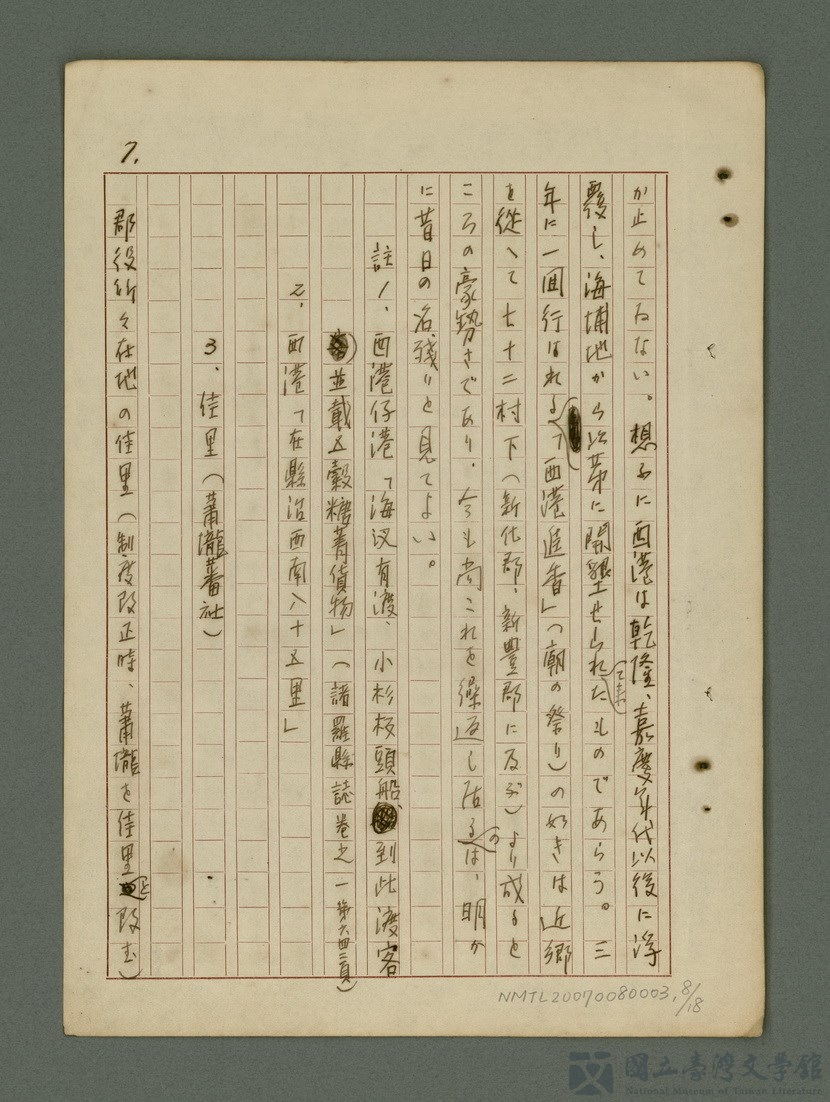 7.
か止めてゐない。想ふに西港は乾隆、嘉慶年代以後に浮
覆し、海埔地から次第に開墾せられて来たものであらう。三
年に一囬行はれる「西港進香」(廟の祭り)の如きは近郷
を従へて七十二村下(新化郡、新豊郡に及ぶ)より成ると
ころの豪勢さであり、今も尚これを繰返し居るのは、明か
に昔日の名残りと見てよい。
註1、西港仔港「海汊有渡、小杉板頭船、到此渡客
並載五穀糖菁貨物」(諸羅縣誌卷之一第六四三頁)
2、西港「在縣治西南八十五里」
3、佳里(蕭壠蕃社)
郡役所々在地の佳里(制度改正時、蕭壠を佳里と改む)
NMTL20070080003, 8/18
國立臺灣文學館
National Museum of Taiwan Literature